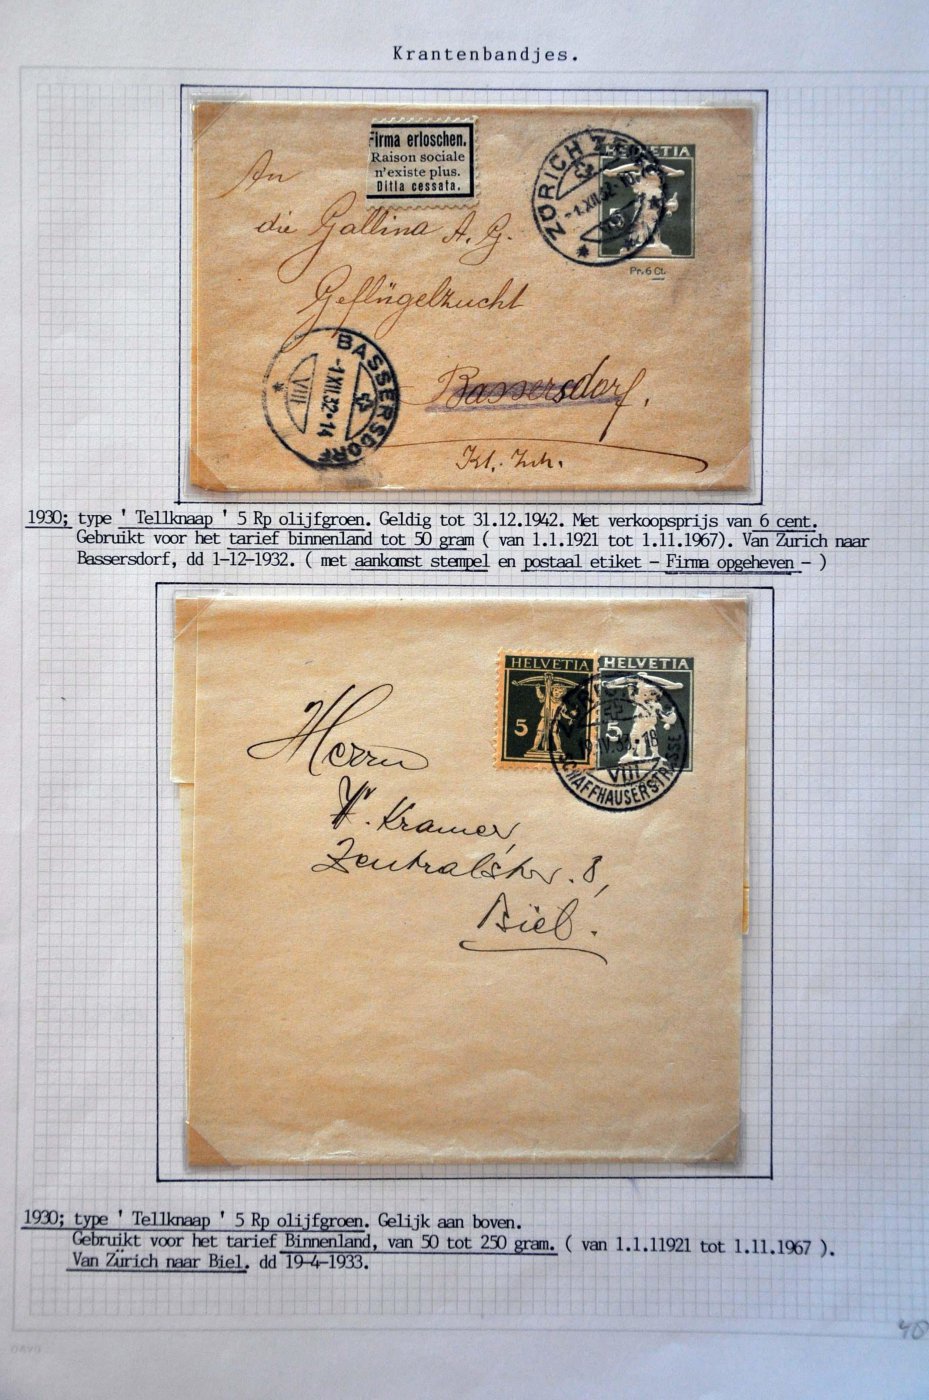 Krantenbandjes.
Firma erloschen.
Raison sociale
n'existe plus.
Ditta cessata.
ZÜRICH
-1.XII.32-10
VIII
HELVETIA
Pr. 6 Ct.
An
die Gallina A. G.
Geflügelzucht
Bassersdorf.
Kt. Zch.
BASSERSDORF
-1.XII.32·14
VIII
1930; type ' Tellknaap ' 5 Rp olijfgroen. Geldig tot 31.12.1942. Met verkoopsprijs van 6 cent.
Gebruikt voor het tarief binnenland tot 50 gram ( van 1.1.1921 tot 1.11.1967). Van Zurich naar
Bassersdorf, dd 1-12-1932. ( met aankomst stempel en postaal etiket - Firma opgeheven - )
HELVETIA
5
HELVETIA
5
ZÜRICH
19.IV.33.-18
VIII
SCHAFFHAUSERSTRASSE
Herrn
W. Kramer,
Zentralstr. 8,
Biel.
1930; type ' Tellknaap ' 5 Rp olijfgroen. Gelijk aan boven.
Gebruikt voor het tarief Binnenland, van 50 tot 250 gram. ( van 1.1.11921 tot 1.11.1967 ).
Van Zürich naar Biel. dd 19-4-1933.
40
DAVO